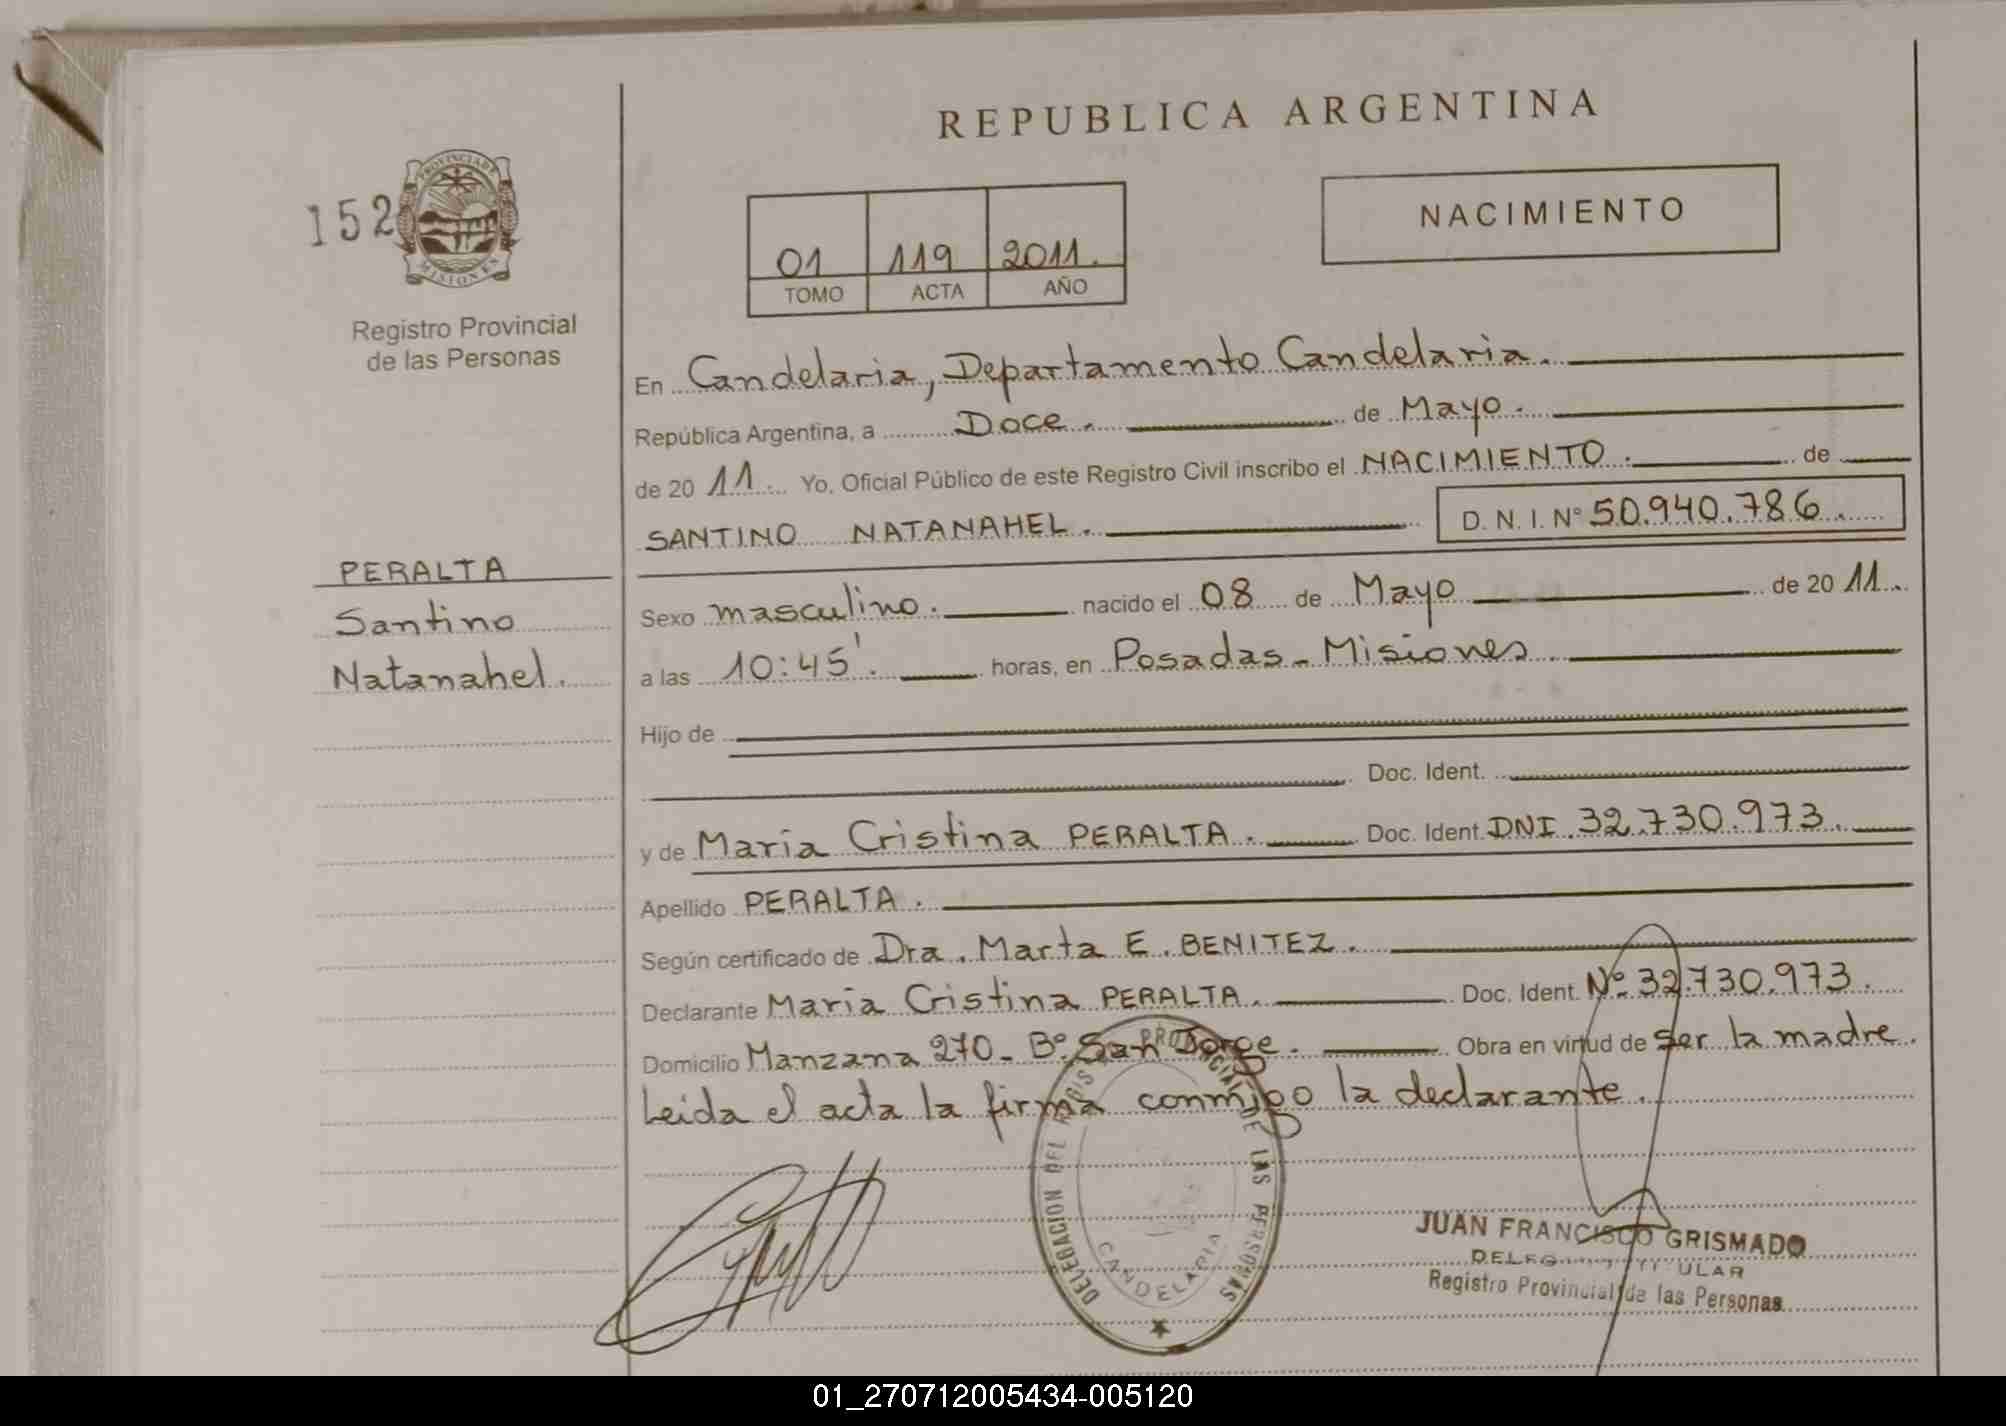 REPUBLICA ARGENTINA
152
PROVINCIA DE
MISIONES
Registro Provincial
de las Personas
01 119 2011.
TOMO ACTA AÑO
NACIMIENTO
En Candelaria, Departamento Candelaria.
República Argentina, a Doce. de Mayo.
de 20 11. Yo, Oficial Público de este Registro Civil inscribo el NACIMIENTO. de
SANTINO NATANAHEL. D. N. I. Nº 50.940.786.
PERALTA
Santino
Natanahel.
Sexo masculino. nacido el 08 de Mayo de 20 11.
a las 10:45'. horas, en Posadas - Misiones
Hijo de
Doc. Ident.
y de María Cristina PERALTA. Doc. Ident. DNI 32.730.973.
Apellido PERALTA.
Según certificado de Dra. Marta E. BENITEZ.
Declarante María Cristina PERALTA. Doc. Ident. Nº 32.730.973.
Domicilio Manzana 270 - Bº San Jorge. Obra en virtud de ser la madre.
Leida el acta la firma conmigo la declarante.
DELEGACION DEL REGISTRO PROVINCIAL DE LAS PERSONAS
CANDELARIA
JUAN FRANCISCO GRISMADO
Registro Provincial de las Personas
01_270712005434-005120